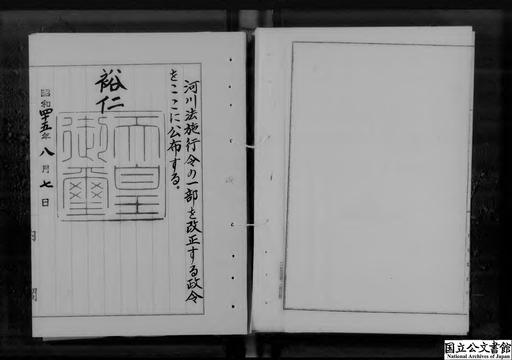 河川法施行令の一部を改正する政令
をここに公布する。
裕仁
天皇
御璽
昭和四十五年八月七日
国立公文書館
National Archives of Japan